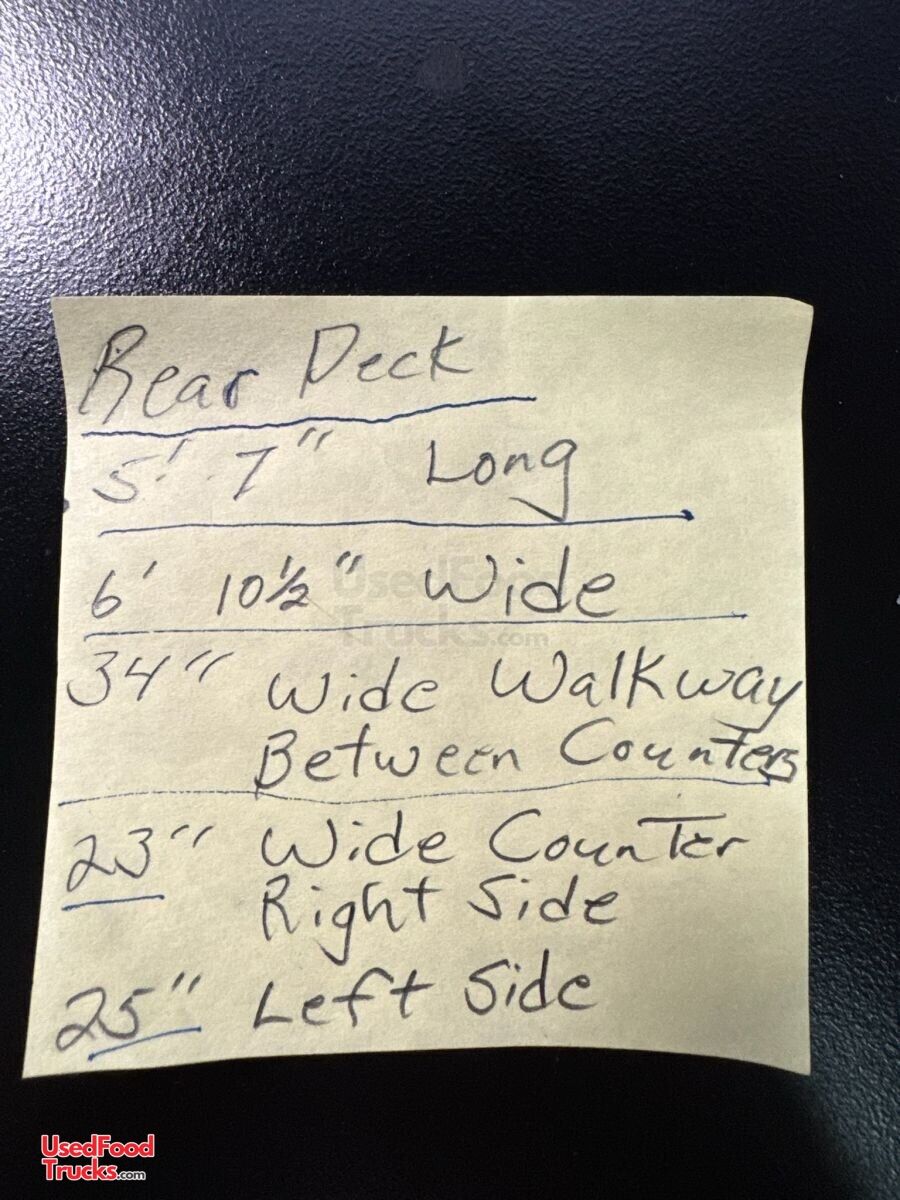 Rear Deck
5' 7" Long
6' 10½" Wide
UsedFood
Trucks.com
34" Wide Walkway
Between Counters
23" Wide Counter
Right Side
25" Left Side
UsedFood
Trucks.com